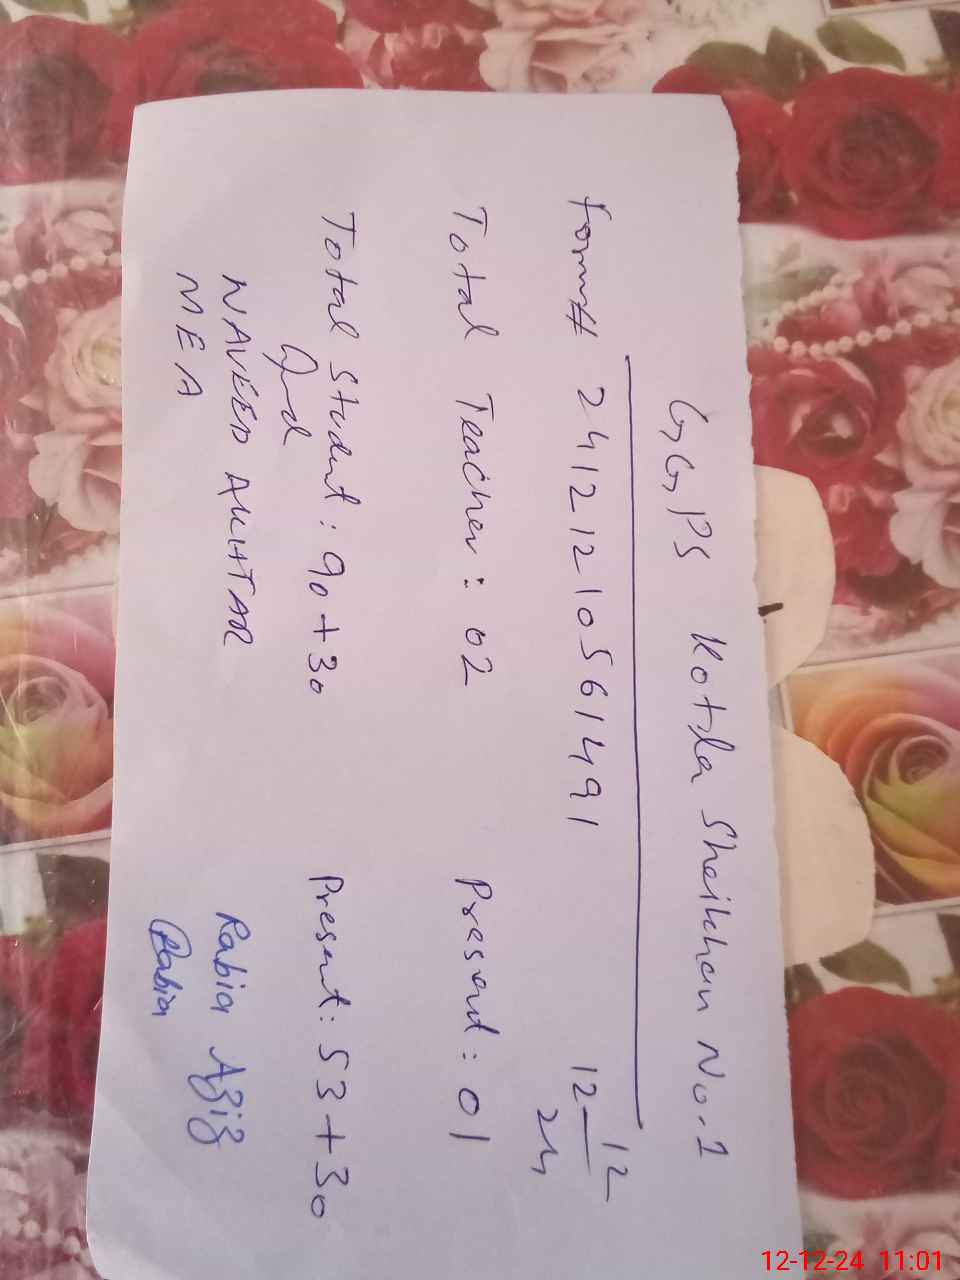 GGPS Kotla Sheikhan No.1
form# 24121210561491 12-12-24
Total Teacher: 02 Present: 01
Total Student: 90+30 Present: 53+30
NAVEED AKHTAR Rabia Aziz
MEA Rabia
12-12-24 11:01